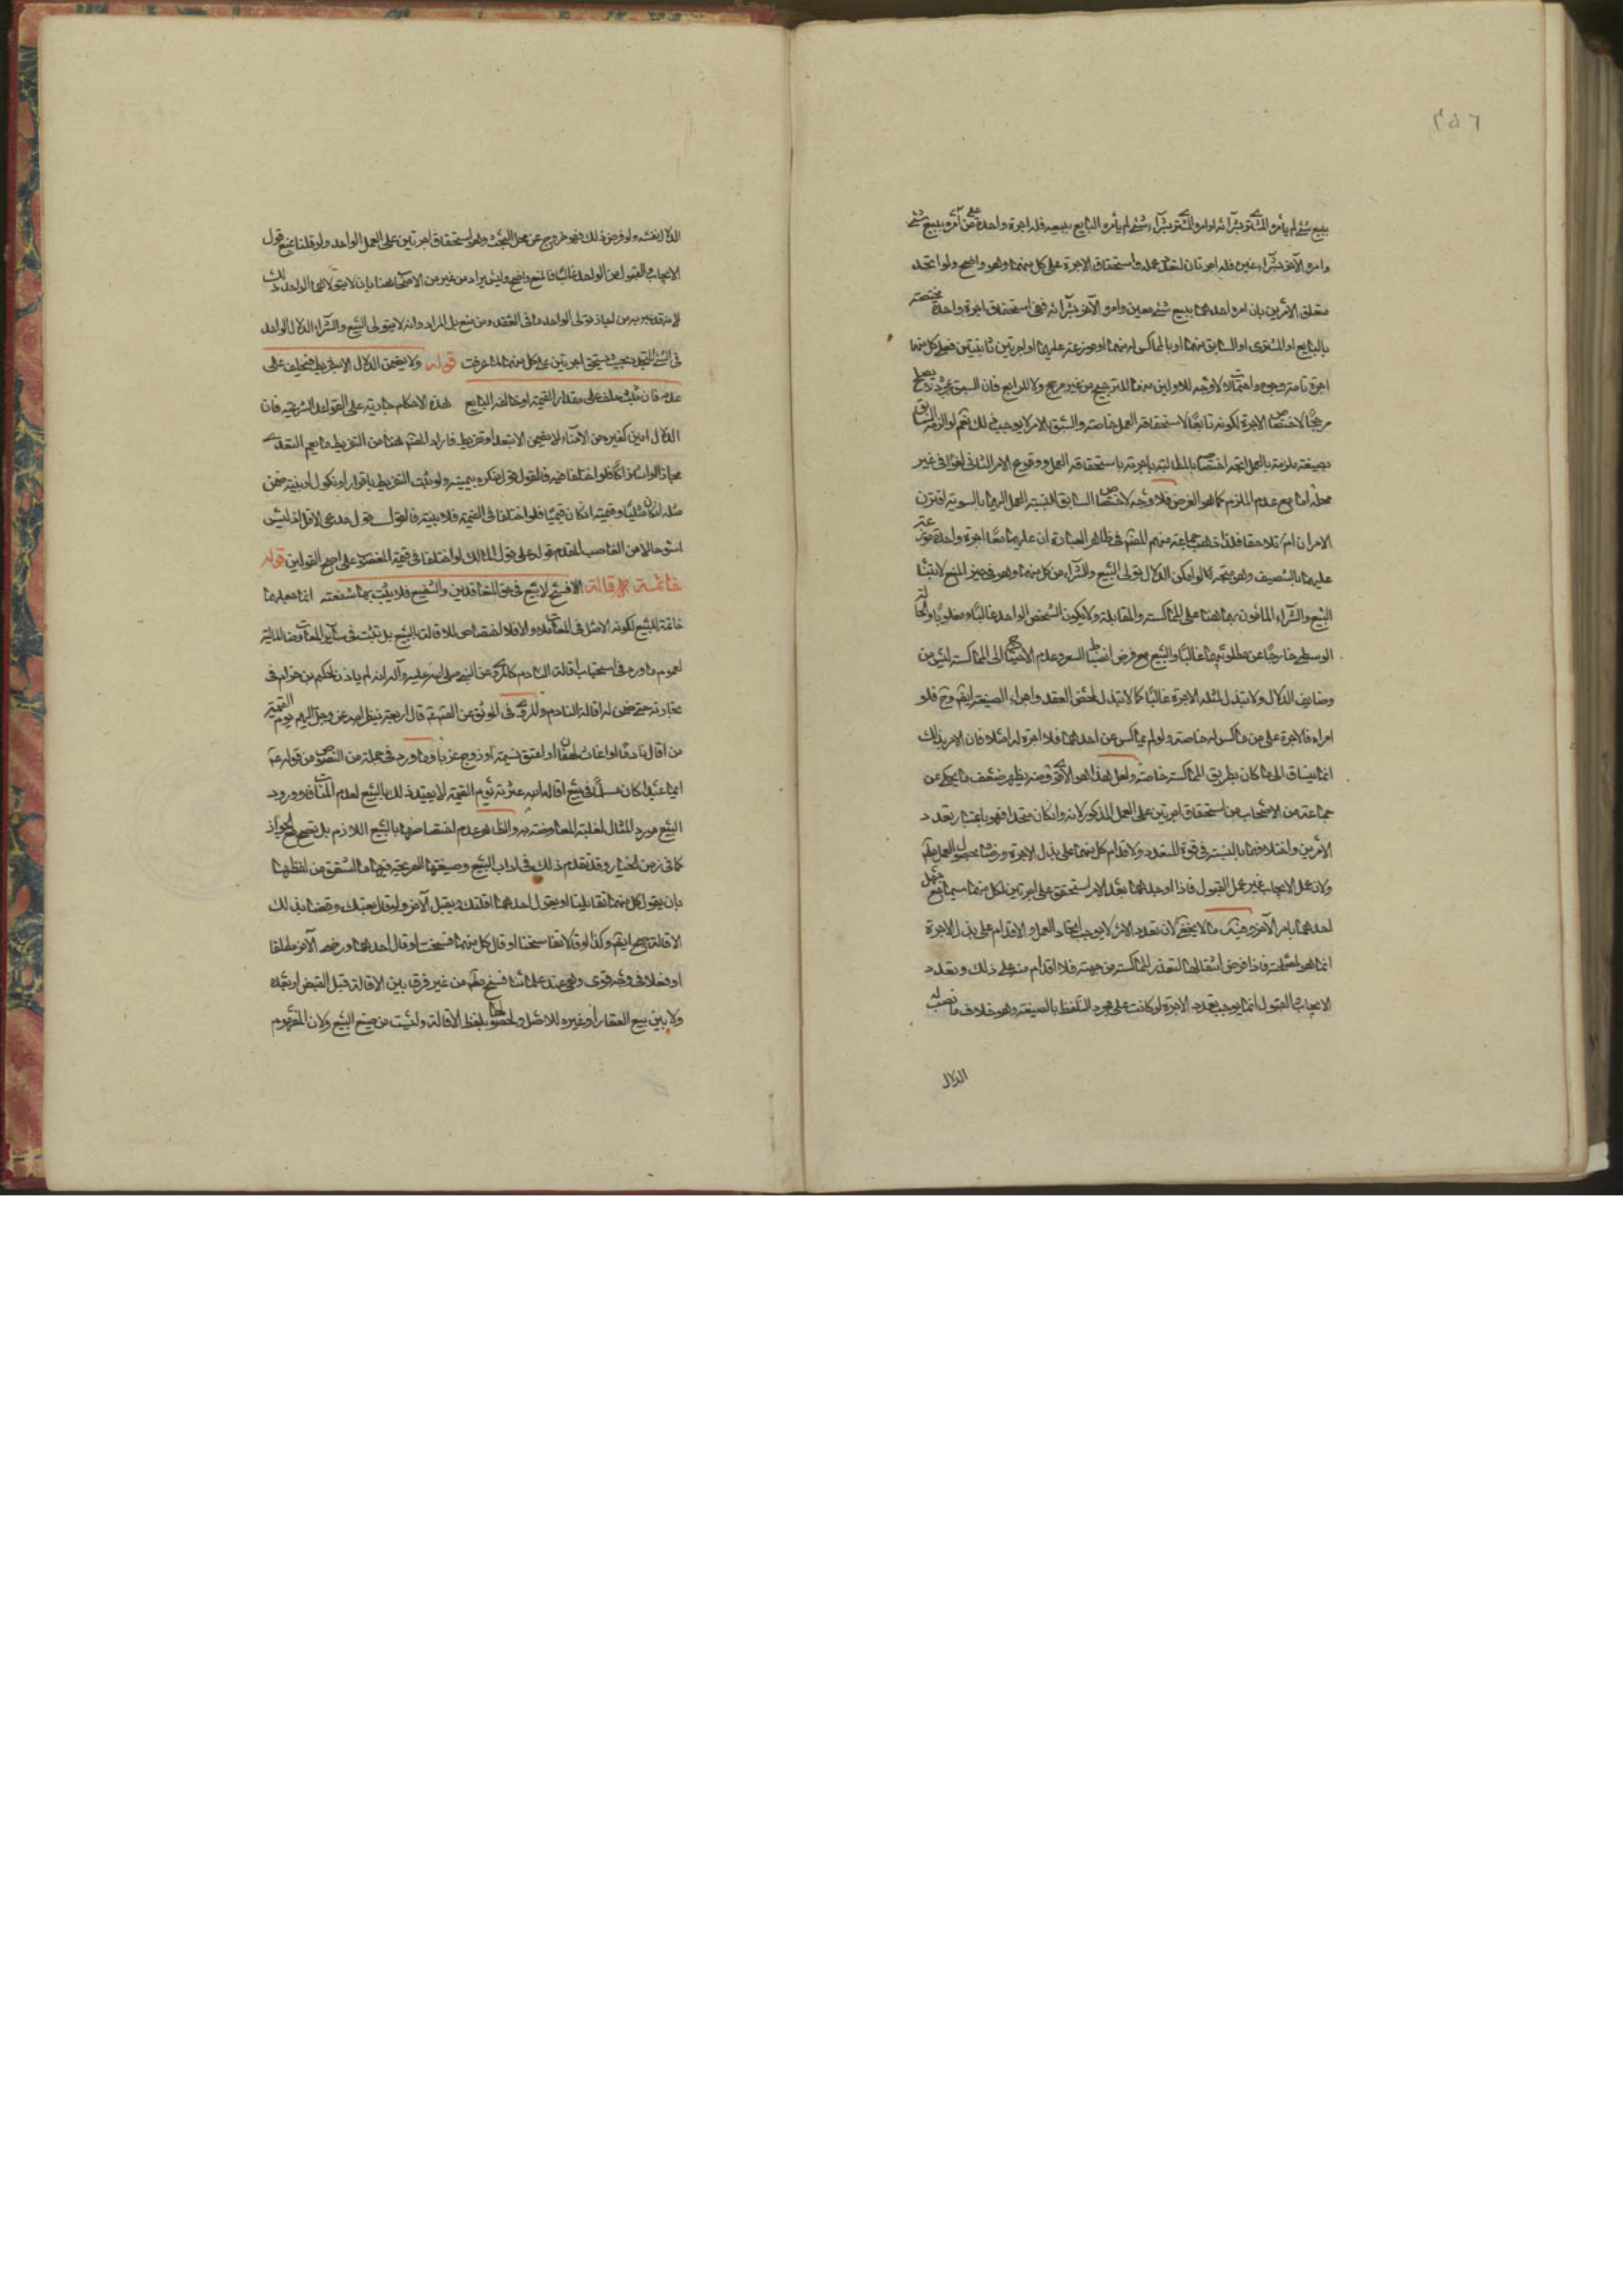 ٢٥٦
ببيع شئ لم يأمره المشترى بشرائه او امره المشترى بشراء شئ لم يأمره البايع ببيعه فله اجرة واحدة على من امره ببيع شئ
وامره الآخر بشراء غيره فله اجرتان لتعدد عمله واستحقاق الاجرة على كل منهما وهو واضح ولو اتحد
متعلق الأمرين بان امره احدهما ببيع شئ معين وامره الآخر بشرائه ففى استحقاق اجرة واحدة مختصة
بالبايع او المشترى او السابق منهما او بالمماكس له منهما او موزعة عليهما او اجرتين ثابتتين فعلى كل منهما
اجرة تامة وجوه واحتمالات لا وجه للاولين منها للترجيح من غير مرجح ولا للرابع فان السبق بمجرده لا يصلح
مرجحًا لاختصاص الاجرة لكونه تابعًا لاستحقاقه العمل خاصة والسبق بالامر لا يوجب ذلك نعم لو الزمه السابق
بصيغة ملزمة بالعمل اتجه اختصاصه بالمطالبة باجرته باستحقاقه العمل ووقوع الامر الثانى لغوًا فى غير
محله اما مع عدم الملزم كما هو الفرض فلا وجه لاختصاص السابق لنسبة العمل اليهما بالسوية اقترن
الامران ام تلاحقا فلذا ذهب جماعة منهم المصنف فى ظاهر العبارة ان عليهما معًا اجرة واحدة موزعة
عليهما بالتنصيف وهو متجه كما لو امكن الدلال تولى البيع والشراء من كل منهما وهو فى حيز المنع لابتناء
البيع والشراء المأذون بهما هنا على المماكسة والمقابلة ولا يكون الشخص الواحد غالبًا ومغلوبًا والحالة
الوسطى خارجة عن مطلوبهما غالبًا والبيع مع فرض انضباط السعر وعدم الاحتياج الى المماكسة ليس من
وضايف الدلال ولا تبذل لمثله الاجرة غالبًا كما لا تبذل لمحض العقد واجراء الصيغة ايضًا وح فلو
امراه فالاجرة على من ماكس له خاصة ولو لم يماكس عن احدهما فلا اجرة له اصلا فان الامر بذلك
انما ينساق الى ما كان بطريق المماكسة خاصة ولعل هذا هو الاقوى ومنه يظهر ضعف ما يحكى عن
جماعة من الاصحاب من استحقاق اجرتين على العمل المذكور لانه وان كان متحدا فهو باعتبار تعدد
الأمرين واختلافهما بالنسبة فى قوة المتعدد ولاقدام كل منهما على بذل الاجرة ورضاه بحصول العمل منه
ولان عمل الايجاب غير عمل القبول فاذا اوجد بعد الامر استحق على اجرتين لكل منهما سيما مع جهل
احدهما بامر الآخر وفيه ما لا يخفى لان تعدد الامر لا يوجب اتحاد العمل والاقدام على بذل الاجرة
انما هو لمصلحته فاذا فرض انتفائها لتعذر المماكسة من جهته فلا اقدام منه على ذلك وتعدد
الايجاب والقبول انما يوجب تعدد الاجرة لو كانت على مجرد التلفظ بالصيغة وهو خلاف ما نصب له
الدلال
الدلال نفسه ولو فرض ذلك فهو خروج عن محل البحث وهو استحقاق اجرتين على العمل الواحد ولو قلنا بمنع قبول
الايجاب والقبول من الواحد غالبًا فالمنع واضح وليس مراد من غير من الاصحاب هنا بان لا يتولاهما الواحد ذلك
لانه قد عبر به من اجاز تولى الواحد طرفى العقد ومن منع بل المراد وانه لا يتولى البيع والشراء الدلال الواحد
فى الشئ المتحد بحيث يستحق اجرتين على كل منهما لما عرفت قوله ولا يضمن الدلال الا بتفريط فيحلف على
عدمه فان ثبت حلف على مقدار القيمة لو خالفه البايع هذه الاحكام جارية على القواعد الشرعية فان
الدلال امين كغيره من الامناء لا يضمن الا بتعد او تفريط فاراد المصنف هنا من التفريط ما يعم التعدى
مجازا او اشتراكًا فلو اختلفا فيه فالقول قول منكره بيمينه ولو ثبت التفريط باقرار او نكول او بينة ضمن
مثله ان كان مثليًا وقيمته ان كان قيميًا فلو اختلفا فى القيمة فلا بينة فالقول قول مدعى الاقل اذ ليس
اسوء حالا من الغاصب المقدم قوله على قول المالك لو اختلفا فى قيمة المغصوب على اصح القولين قوله
خاتمة الاقالة فسخ لا بيع فى حق المتعاقدين والشفيع فلا يثبت بها شفعة انما جعلها
خاتمة للبيع لكونه الاصل فى المعاملات والا فلا اختصاص للاقالة بالبيع بل تثبت فى ساير المعاوضات المالية
لعموم ما ورد فى استحباب اقالة النادم كالمروى عن النبى صلى الله عليه وآله انه لم ياذن لحكيم بن حزام فى
تجارته حتى ضمن له اقالة النادم والمروى فى الموثق عن الصادق قال اربعة ينظر الله عز وجل اليهم يوم القيمة
من اقال نادمًا او اغاث لهفان او اعتق نسمة او زوج عزبا وما ورد فى جملة من النصوص من قوله ع
ايما عبد اقال مسلمًا فى بيع اقاله الله عثرته يوم القيمة لا يقيد ذلك بالبيع لعدم المنافاة وورود
البيع مورد المثال لغلبة المعاوضة به والظاهر عدم اختصاصها بالبيع اللازم بل تصح مع الجواز
كما فى زمن الخيار وقد تقدم ذلك فى اداب البيع وصيغتها الصريحة فيها ما اشتق من لفظها
بان يقول كل منهما تقايلنا او يقول احدهما اقلتك ويقبل الآخر ولو قال بعتك وقصد بذلك
الاقالة صح ايضًا وكذا لو قالا تفاسخنا او قال كل منهما فسخت او قال احدهما ورضى الآخر مطلقا
او فعلا فى وجه قوى وهى عند علمائنا فسخ من غير فرق بين الاقالة قبل القبض او بعده
ولا بين بيع العقار او غيره للاصل ولحصولها بلفظ الاقالة وليست من صيغ البيع ولان المفهوم